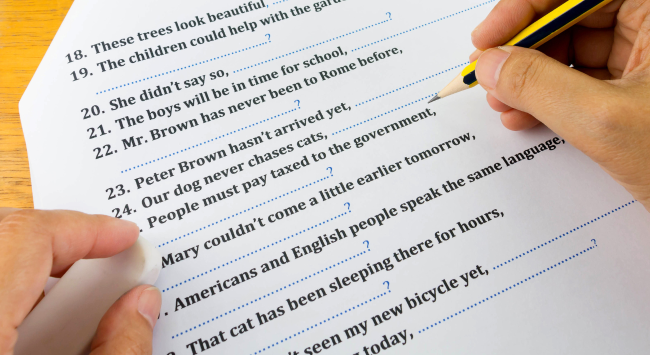 18. These trees look beautiful, ........
19. The children could help with the
........?
20. She didn't say so, ........?
21. The boys will be in time for school, ........
22. Mr. Brown has never been to Rome before,
........?
23. Peter Brown hasn't arrived yet, ........
24. Our dog never chases cats, ........
. People must pay taxed to the government,
........?
Mary couldn't come a little earlier tomorrow,
........?
. Americans and English people speak the same language,
........?
That cat has been sleeping there for hours,
........?
seen my new bicycle yet, ........
today, ........?